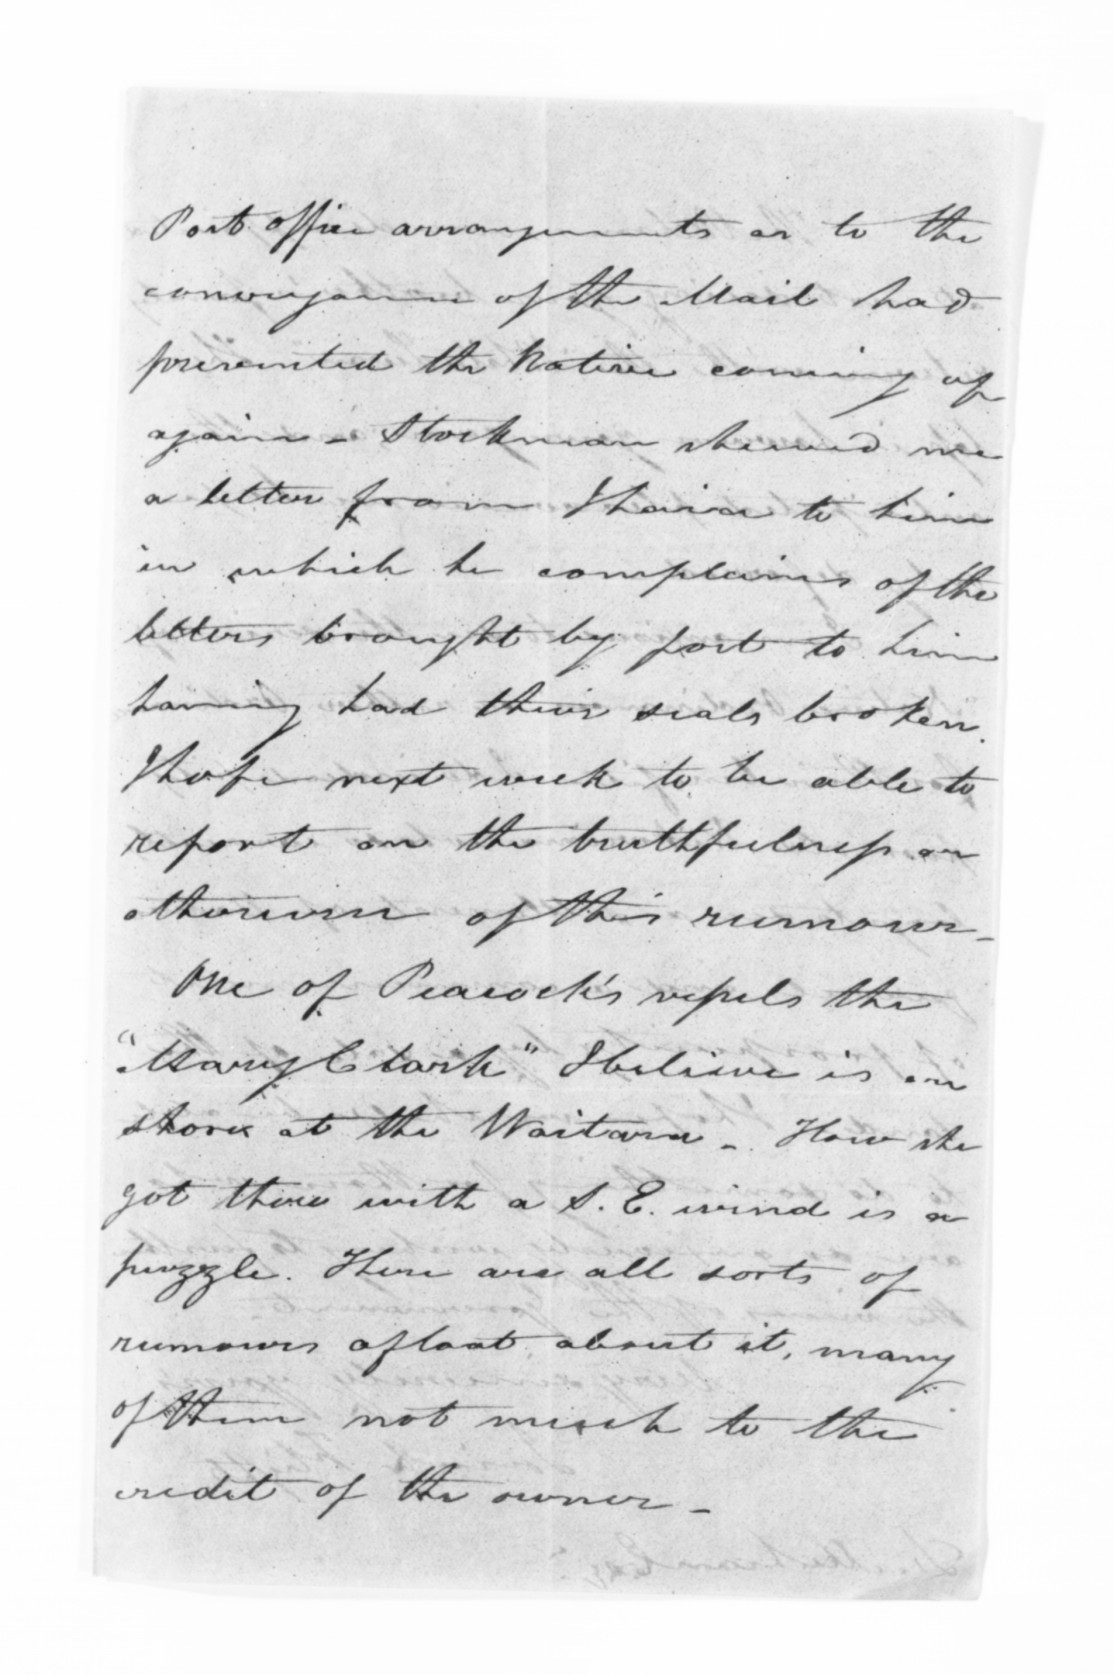 Post office arrangements as to the
conveyance of the Mail had
prevented the Natives coming up
again - Stockman shewed me
a letter from Ihaia to him
in which he complains of the
letters brought by post to him
having had their seals broken.
I hope next week to be able to
report on the truthfulness or
otherwise of this rumour -
One of Peacock's vessels the
"Mary Clark" I believe is on
shore at the Waitara - How she
got there with a S. E. wind is a
puzzle. There are all sorts of
rumours afloat about it, many
of them not much to the
credit of the owner -